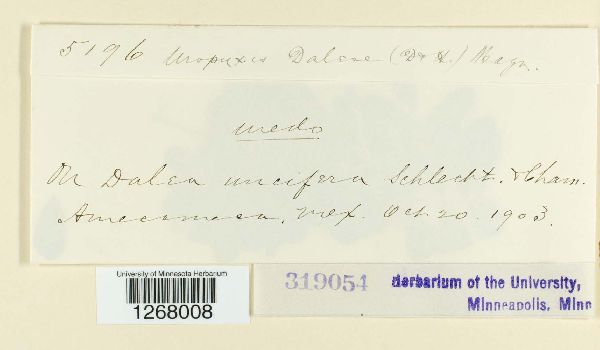 5196 Uropyxis Daleae (D & H.) Magn.
uredo
On Dalea uncifera Schlecht. & Cham.
Amecameca, Mex. Oct. 20. 1903.
University of Minnesota Herbarium
1268008
319054
Herbarium of the University,
Minneapolis, Minn